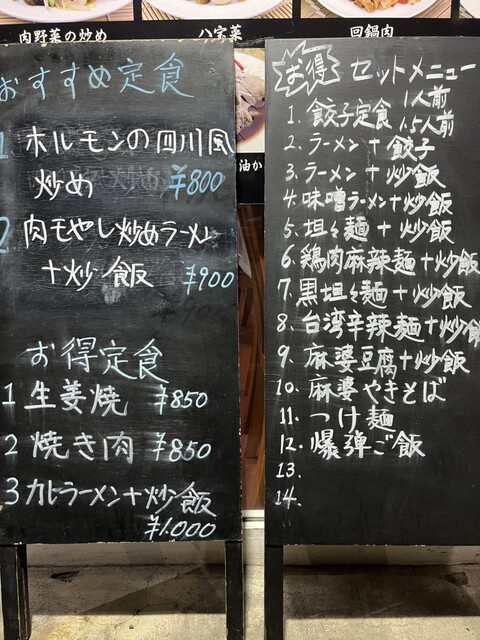 肉野菜の炒め
八宝菜
回鍋肉
おすすめ定食
1 ホルモンの四川風
炒め ¥800
2 肉モヤし炒めラーメン
+炒飯 ¥900
お得定食
1 生姜焼 ¥850
2 焼き肉 ¥850
3 カルラーメン+炒飯
¥1.000
油か
お得 セットメニュー
1. 餃子定食 1人前
1.5人前
2. ラーメン+餃子
3. ラーメン+炒飯
4. 味噌ラーメン+炒飯
5. 坦々麺+炒飯
6. 鶏肉麻辣麺+炒飯
7. 黒坦々麺+炒飯
8. 台湾辛辣麺+炒飯
9. 麻婆豆腐+炒飯
10. 麻婆やきそば
11. つけ麺
12. 爆弾ご飯
13.
14.